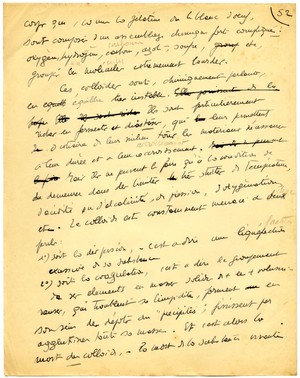 52
corps qui, comme la gélatine ou le blanc d'oeuf,
sont composés d'un assemblage chimique fort compliqué :
oxygène, hydrogène, carbone, azote, soufre, etc,
groupés en molécules extrêmement lourdes.
Ces colloïdes sont, chimiquement parlant,
en équilibre instable.
Ils sont particulièrement
riches en ferments qui leur permettent
de leur milieu tous les matériaux nécessaires
à leur durée et à leur
Mais ils ne peuvent le faire qu'à la condition de
demeurer dans des limites de température,
d'acidité ou d'alcalinité, de pression, d'oxygénation,
etc. Le colloïde est constamment menacé de deux
périls :
1°) soit la dispersion, - c'est à dire une liquéfaction
excessive de sa substance
2°) soit la coagulation, c'est à dire le groupement
de ses éléments en masses solides et volumi-
neuses, qui troublent sa limpidité, forment en
son sein des dépôts ou "précipités", finissent par
agglutiner toute sa masse. Et c'est alors la
mort du colloïde, - la mort de la substance vivante